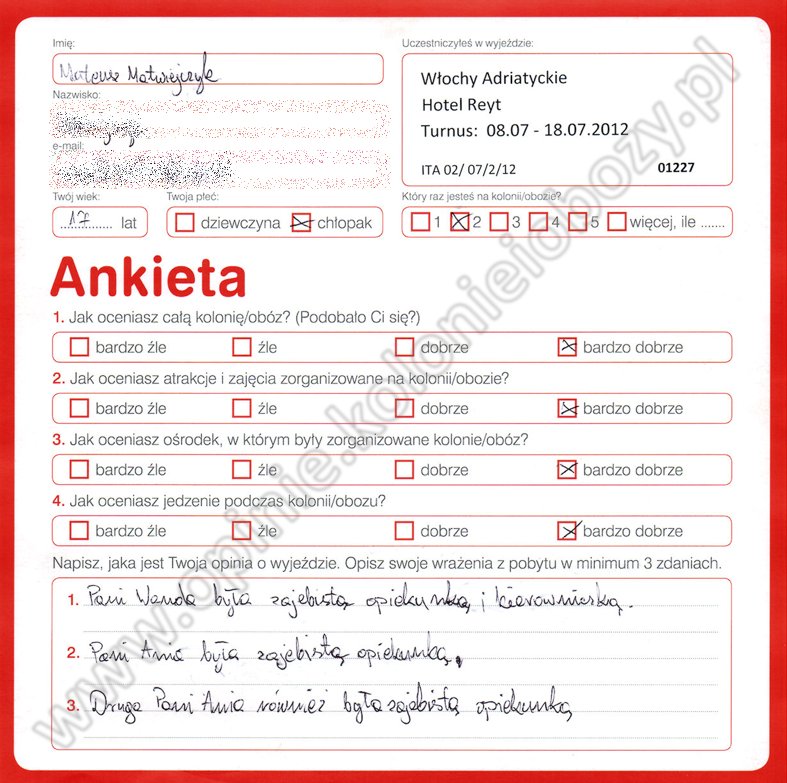 Imię:
Uczestniczyłeś w wyjeździe:
Mateusz Matwiejczyk
Włochy Adriatyckie
Hotel Reyt
Turnus: 08.07 - 18.07.2012
ITA 02/ 07/2/12 01227
Nazwisko:
e-mail:
Twój wiek: Twoja płeć: Który raz jesteś na kolonii/obozie?
17 lat dziewczyna chłopak 1 2 3 4 5 więcej, ile .......
Ankieta
1. Jak oceniasz całą kolonię/obóz? (Podobało Ci się?)
bardzo źle źle dobrze bardzo dobrze
2. Jak oceniasz atrakcje i zajęcia zorganizowane na kolonii/obozie?
bardzo źle źle dobrze bardzo dobrze
3. Jak oceniasz ośrodek, w którym były zorganizowane kolonie/obóz?
bardzo źle źle dobrze bardzo dobrze
4. Jak oceniasz jedzenie podczas kolonii/obozu?
bardzo źle źle dobrze bardzo dobrze
Napisz, jaka jest Twoja opinia o wyjeździe. Opisz swoje wrażenia z pobytu w minimum 3 zdaniach.
1. Pani Wanda była zajebistą opiekunką i kierowniczką.
2. Pani Ania była zajebistą opiekunką.
3. Druga Pani Ania również była zajebistą opiekunką
www.opinie.kolonieiobozy.pl